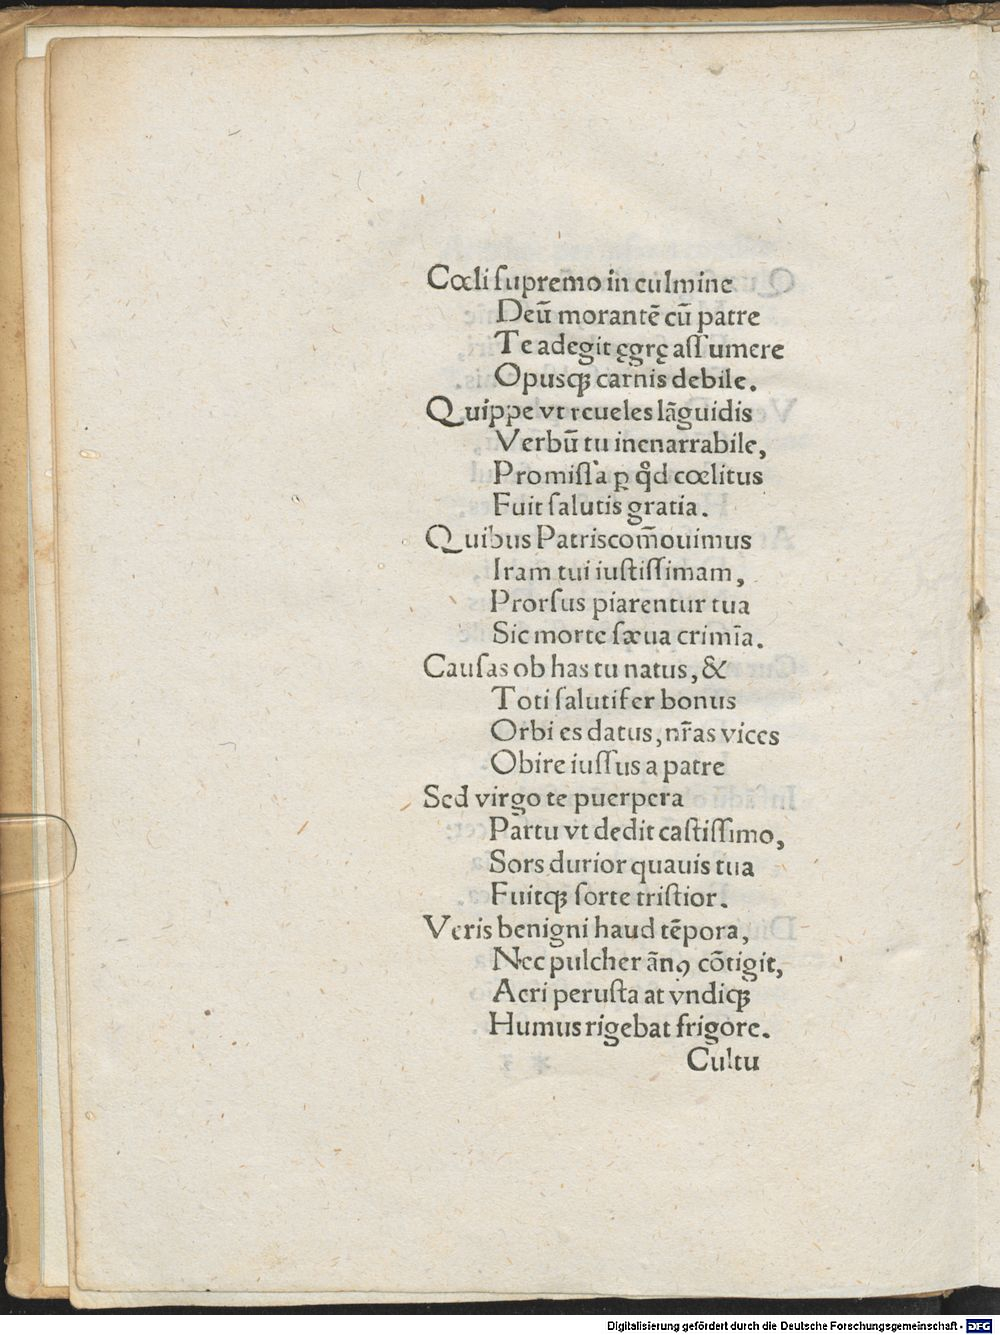 Cœli ſupremo in culmine
Deū morantē cū patre
Te adegit ęgrę aſſumere
Opusqꝫ carnis debile.
Quippe vt reueles lāguidis
Verbū tu inenarrabile,
Promiſſa ꝑ qd̊ cœlitus
Fuit ſalutis gratia.
Quibus Patris com̄ouimus
Iram tui iuſtiſſimam,
Prorſus piarentur tua
Sic morte ſæua crimīa.
Cauſas ob has tu natus, &
Toti ſalutifer bonus
Orbi es datus, nr̄as vices
Obire iuſſus a patre
Sed virgo te puerpera
Partu vt dedit caſtiſſimo,
Sors durior quauis tua
Fuitqꝫ ſorte triſtior.
Veris benigni haud tēpora,
Nec pulcher ānꝯ cōtigit,
Acri peruſta at vndiqꝫ
Humus rigebat frigore.
Cultu
Digitalisierung gefördert durch die Deutsche Forschungsgemeinschaft - DFG